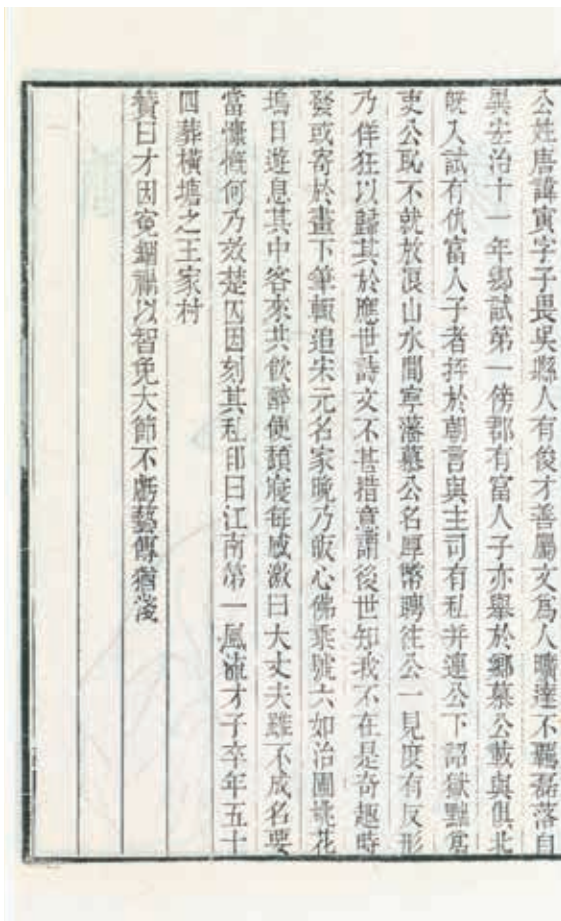 公姓唐諱寅字子畏吳縣人有俊才善屬文為人曠達不羈磊落自
異宏治十一年鄉試第一傍郡有富人子亦舉於鄉慕公載與俱北
旣入試有仇富人子者抨於朝言與主司有私并連公下詔獄黜為
吏公恥不就放浪山水間寧藩慕公名厚幣聘往公一見度有反形
乃佯狂以歸其於應世詩文不甚措意謂後世知我不在是奇趣時
發或寄於畫下筆輒追宋元名家晚乃皈心佛乘號六如治圃桃花
塢日遊息其中客來共飲醉便頹寢每感激曰大丈夫雖不成名要
當慷慨何乃效楚囚因刻其私印曰江南第一風流才子卒年五十
四葬橫塘之王家村
贊曰才因冤錮禍以智免大節不虧藝傳猶淺